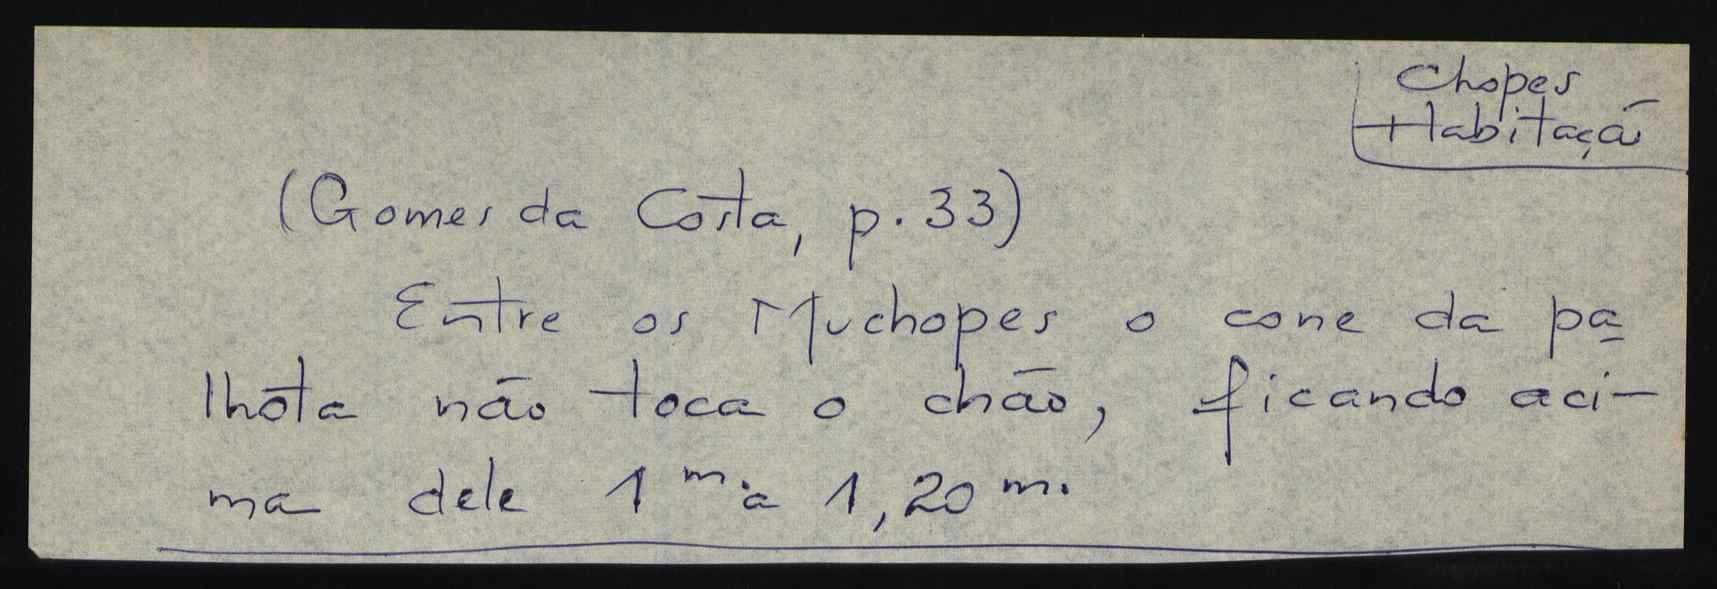 Chopes
Habitação
(Gomes da Costa, p. 33)
Entre os Muchopes o cone da pa
lhota não toca o chão, ficando aci-
ma dele 1 m. a 1,20 m.